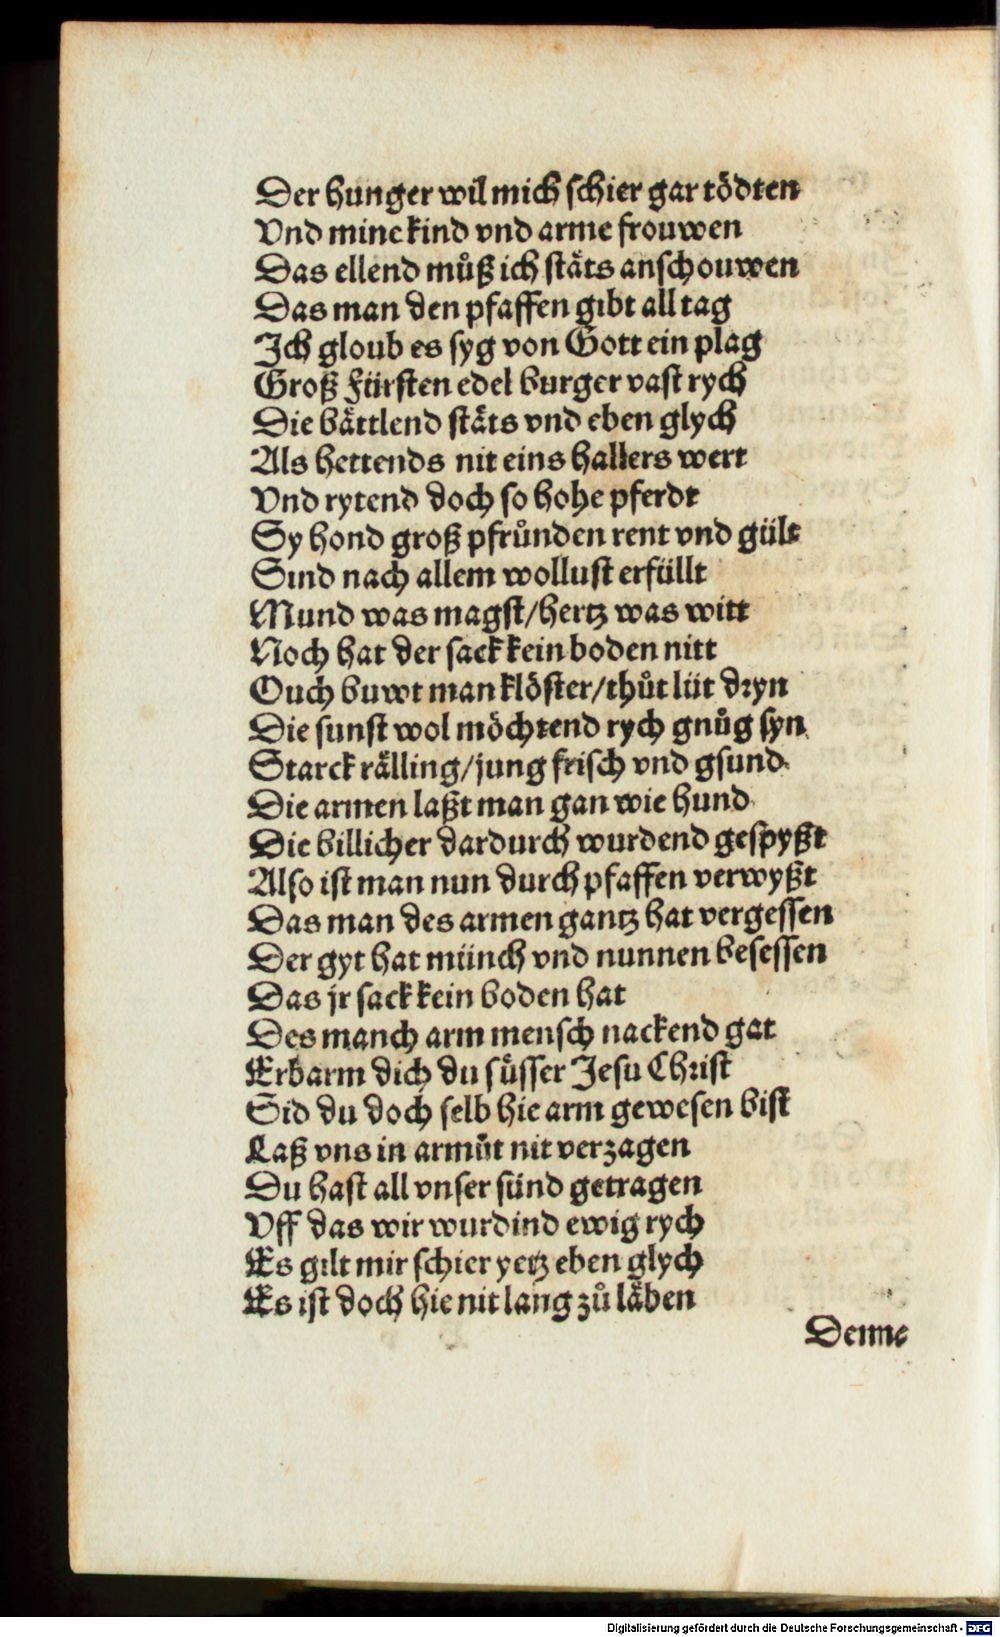 Der hunger wil mich schier gar tödten
Vnd mine kind vnd arme frouwen
Das ellend můß ich stäts anschouwen
Das man den pfaffen gibt all tag
Ich gloub es syg von Gott ein plag
Groß Fürsten edel burger vast rych
Die bättlend stäts vnd eben glych
Als hettends nit eins hallers wert
Vnd rytend doch so hohe pferdt
Sy hond groß pfrůnden rent vnd gült
Sind nach allem wollust erfüllt
Mund was magst/hertz was witt
Noch hat der sack kein boden nitt
Ouch buwt man klöster/thůt lüt dryn
Die sunst wol möchtend rych gnůg syn
Starck rälling/jung frisch vnd gsund
Die armen laßt man gan wie hund
Die billicher dardurch wurdend gespyßt
Also ist man nun durch pfaffen verwyßt
Das man des armen gantz hat vergessen
Der gyt hat münch vnd nunnen besessen
Das jr sack kein boden hat
Des manch arm mensch nackend gat
Erbarm dich du süsser Jesu Christ
Sid du doch selb hie arm gewesen bist
Laß vns in armůt nit verzagen
Du hast all vnser sünd getragen
Vff das wir wurdind ewig rych
Es gilt mir schier yetz eben glych
Es ist doch hie nit lang zů läben
Denne
Digitalisierung gefördert durch die Deutsche Forschungsgemeinschaft - DFG